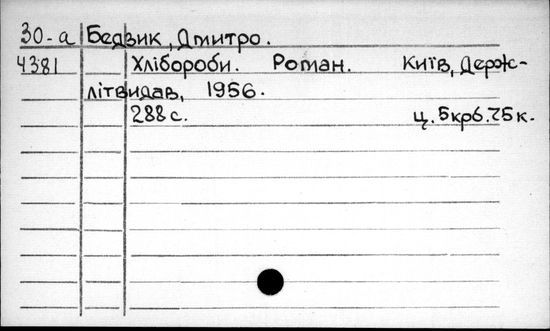 30-а Бедзик, Дмитро.
4381 Хлібороби. Роман. Київ, Держ-
літвидав, 1956.
288 с. ц. 5крб. 75к.